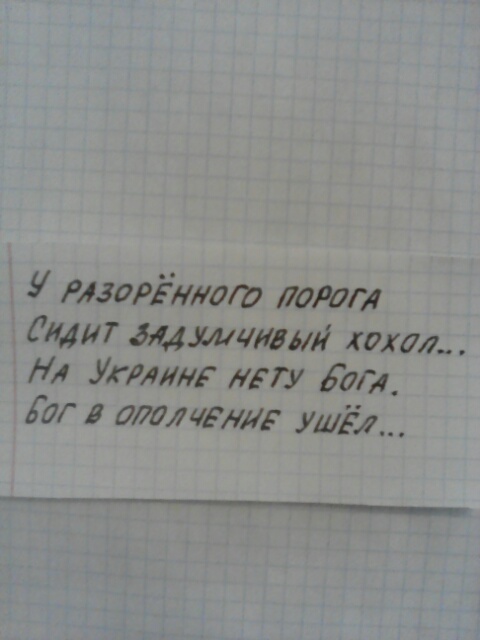 У РАЗОРЁННОГО ПОРОГА
СИДИТ ЗАДУМЧИВЫЙ ХОХОЛ...
НА УКРАИНЕ НЕТУ БОГА.
БОГ В ОПОЛЧЕНИЕ УШЁЛ...